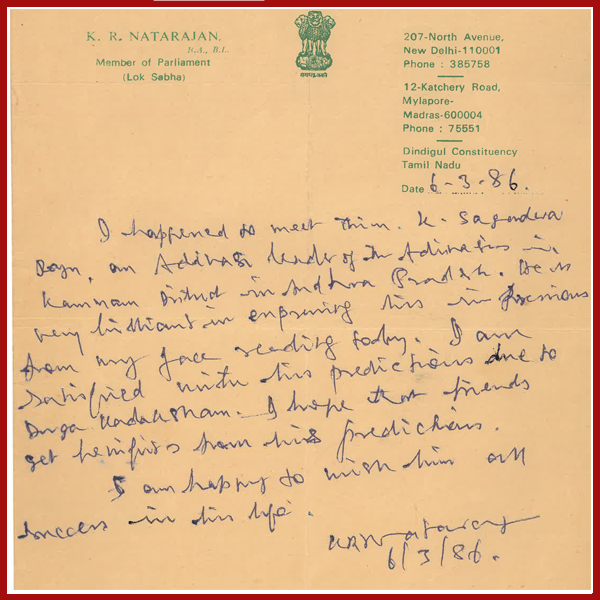 K. R. NATARAJAN,
B.A., B.L.
Member of Parliament
(Lok Sabha)
सत्यमेव जयते
207-North Avenue,
New Delhi-110001
Phone : 385758
12-Katchery Road,
Mylapore-
Madras-600004
Phone : 75551
Dindigul Constituency
Tamil Nadu
Date 6-3-86.
I happened to meet Thiru. K. Sagadeva
Raju, an Adivasi leader of the Adivasis in
Kammam District in Andhra Pradesh. He is
very brilliant in expressing his impressions
from my face reading today. I am
satisfied with his predictions due to
Durga Kadaksham. I hope that friends
get benifits from his predictions.
I am happy to wish him all
success in his life.
K R Natarajan
6/3/86.